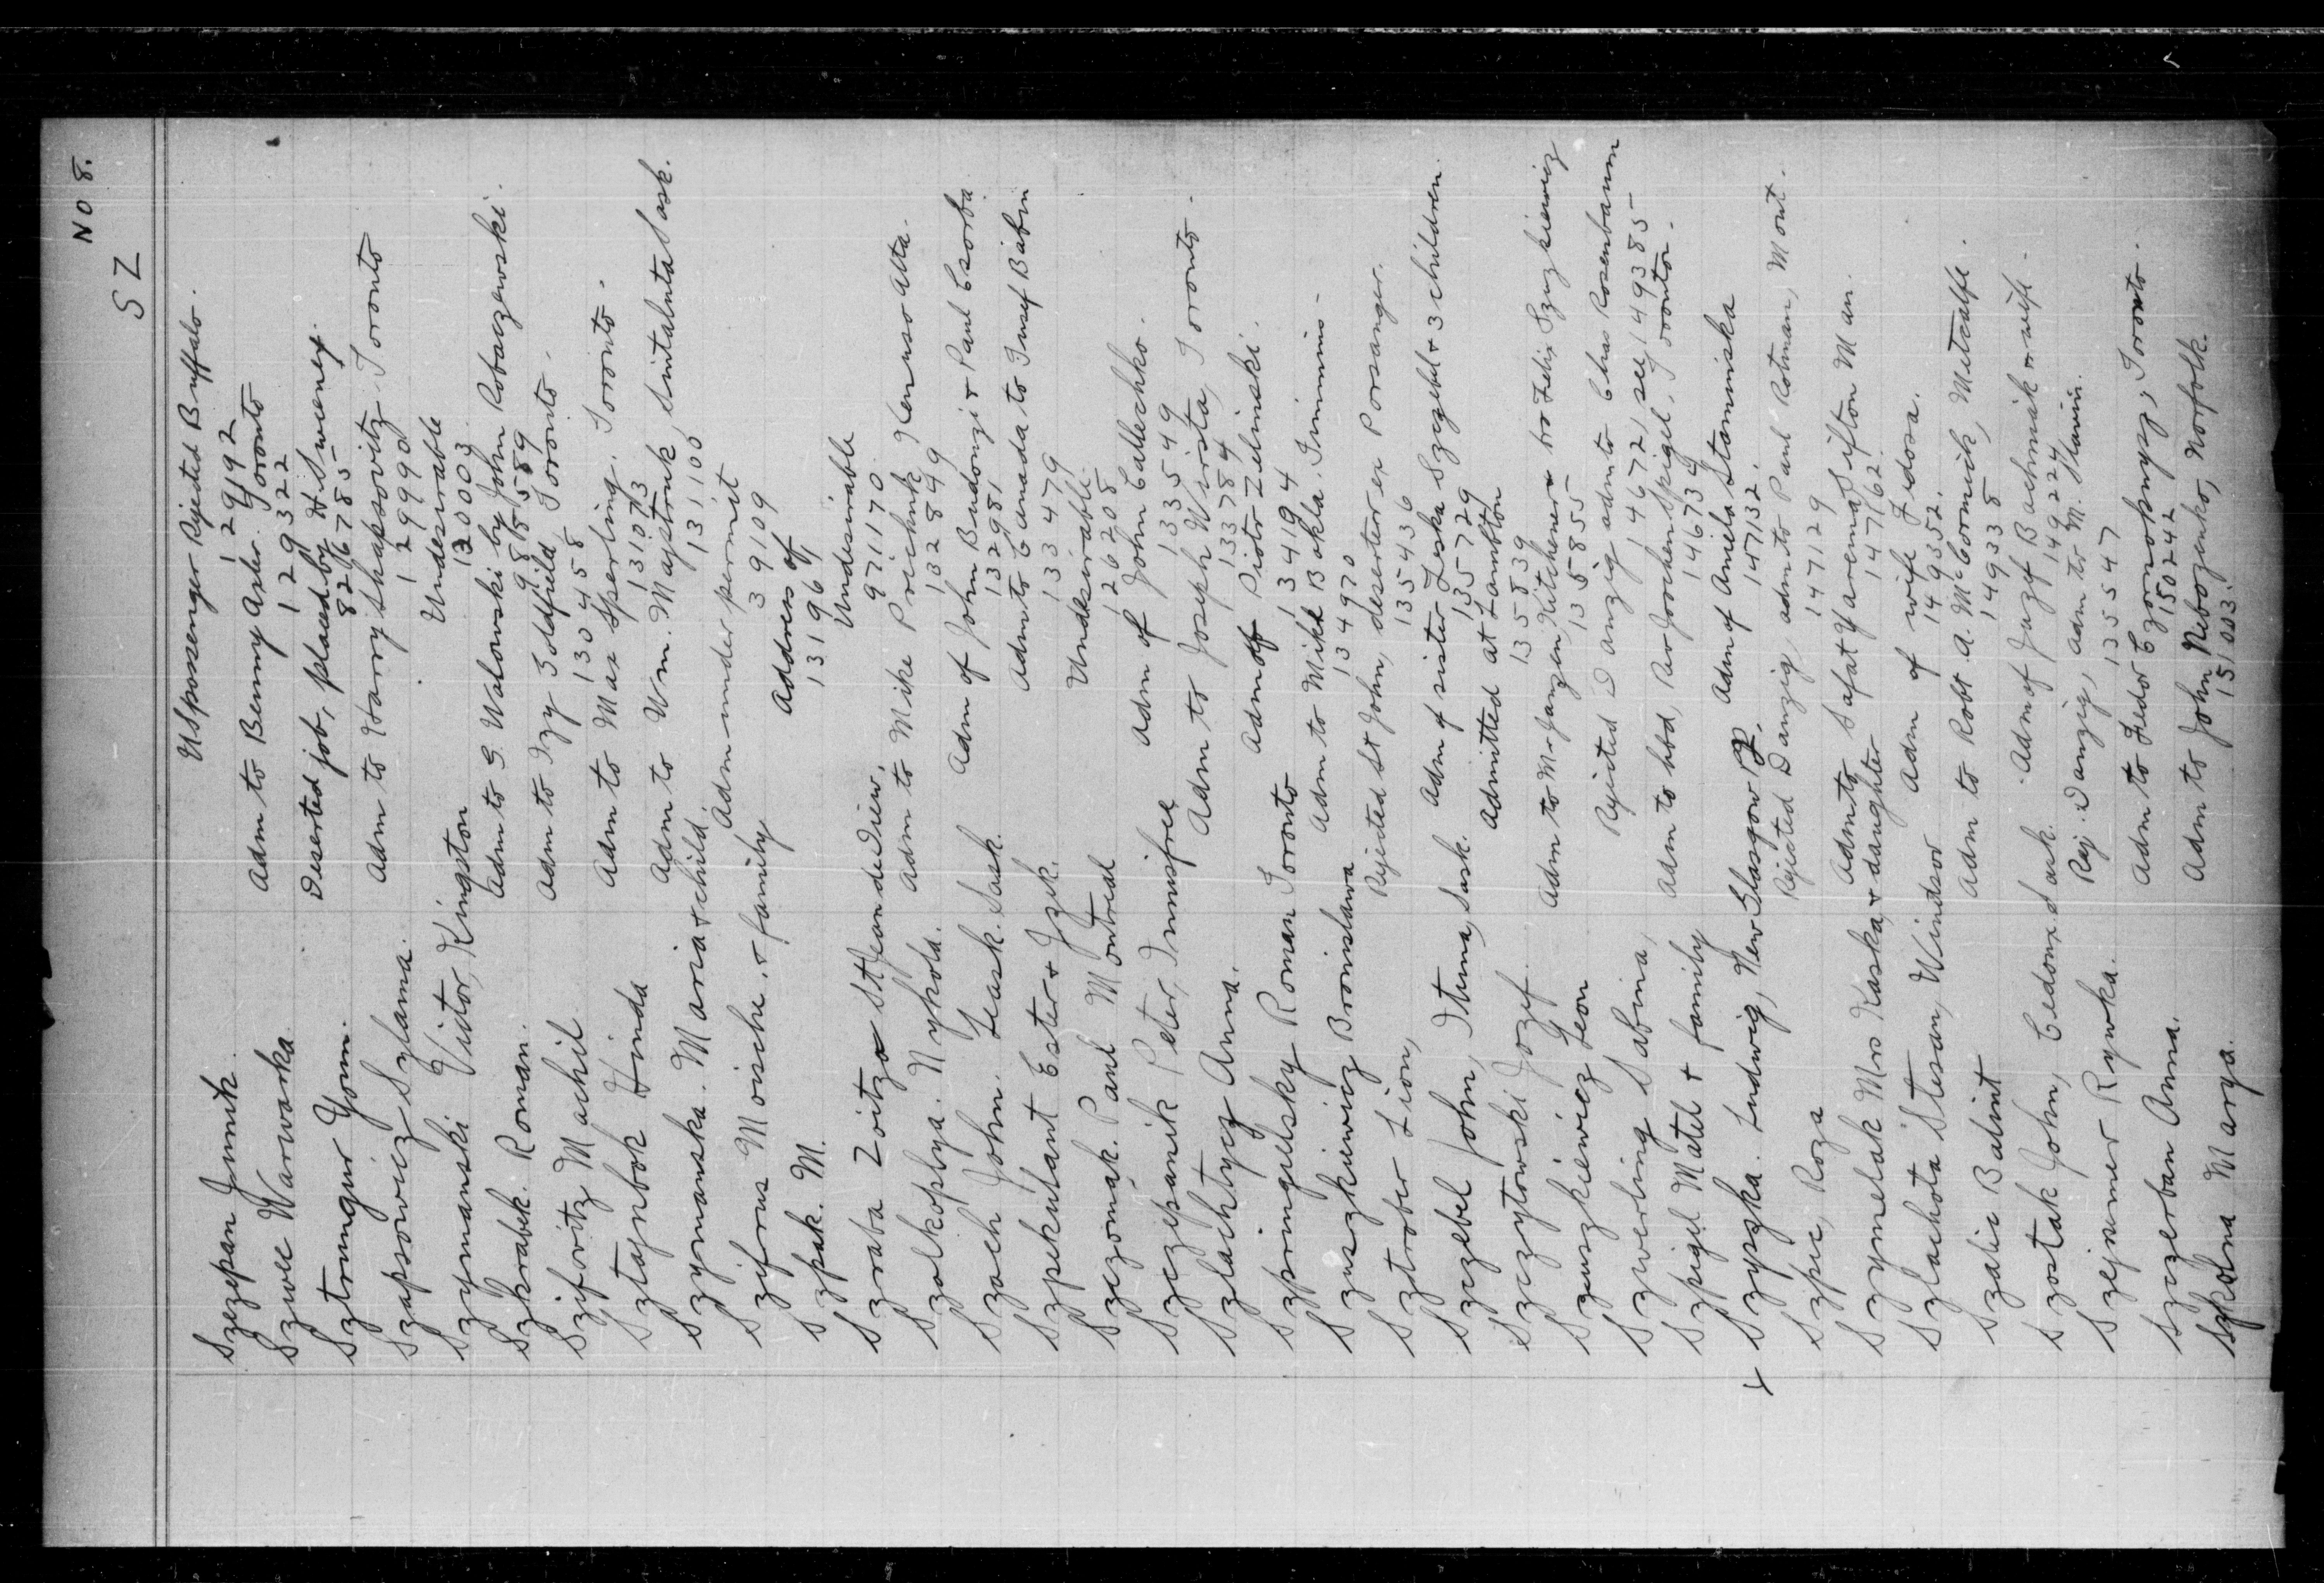 No 8.
SZ
Szezepan Jannik. US passenger Rejected Buffalo.
129192
Szwec Warwarka. Adm to Benny Asher. Toronto
129322
Sztrungur Yonn. Deserted job, placed by H. Sweeney.
826785
Szapsowicz Szlama. Adm to Harry Shapsovitz Toronto
129990
Szymanski Victor, Kingston Undesirable
130003
Szkrabek. Roman. Adm to S. Walowski by John Robaczewski.
988589
Szifovitz Machil Adm to Izy Goldfield, Toronto.
130458
Sztajnbok Hinda Adm to Max Sperling. Toronto.
131073
Szymanska. Maria & child. Adm to Wm. Majstruk, Sintaluta Sask.
131100
Szifrus Moische. & family Adm under permit
39109
Szpak. M. Address of
131967
Szraba Zoitza St Jean de Dieu, Undesirable
971170
Szalkoplya. Nykola. Adm to Mike Prichnik Kenuso Alta.
132849
Szach John. Leask. Sask. Adm of John Budonzi & Paul Csorba
132981
Szpekulant Ester & Izek. Adm to Canada to Insef Biabin
133479
Szczomak. Paul Montreal Undesirable
126208
Szczepanik Peter, Innisfree Adm of John Callechko.
133549
Szlachtycz Anna. Adm to Joseph Wirsta, Toronto.
133784
Szpringelsky Roman Toronto Adm of Piotr Zelinski.
134194
Szuszkiewicz Bronislawa Adm to Mike Bakla. Timmins.
134970
Sztrober Lion, Rejected St John, deserter ex Porsanger.
135436
Szczebel John, Ituna, Sask. Adm of sister Leska Szczebel & 3 children.
135729
Szczytowski Jozef. Admitted at Lambton
135839
Szuszkiewicz Leon Adm to Mr Janzen, Kitchener & bro Felix Szuszkiewicz
135855
Szwerling Sabina, Rejected Danzig adm to Chas Rosenbaum
146721 see 149385
Szpigel Matel & family Adm to hbd, Ber Joochen Spigel, Toronto.
146734
x Szyszka. Ludwig, New Glasgow PQ. Adm of Aniela Stominska
147132.
Szpic, Roza Rejected Danzig, adm to Paul Rotman, Mont.
147129
Szymelak Mrs Kaska, & daughter Adm to Safat Yarema, Sifton Man.
147162.
Szlachota Stesan, Windsor Adm of wife Fedosa.
149352.
Szalic Balint Adm to Robt A. McCormick, Metcalfe.
149338
Szostak John, Cedoux Sask. Adm of Juzef Bachniak & wife.
149224
Szejnmer Rywka. Rej. Danzig, adm to M. Stanin.
135547
Szczerban Anna. Adm to Fedor Czornoknysz, Toronto.
150242
Szkolna Marya. Adm to John Nebozenko, Norfolk.
151003.